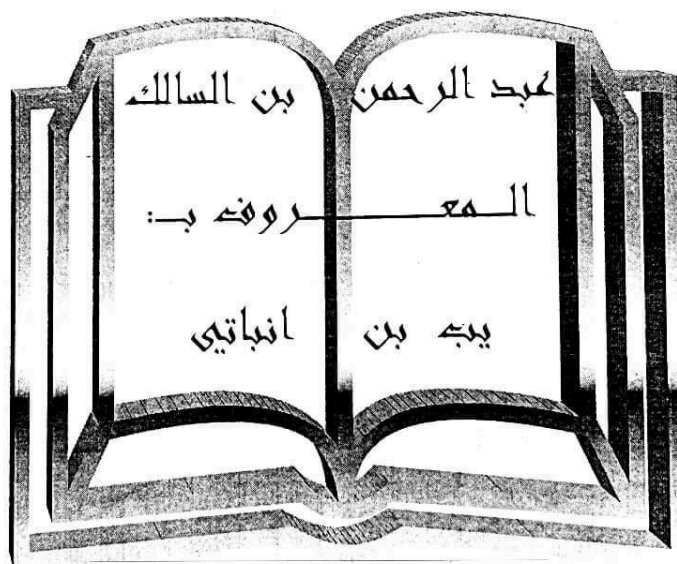 عبد الرحمن بن السالك
المعروف بـ:
يب بن انباتي